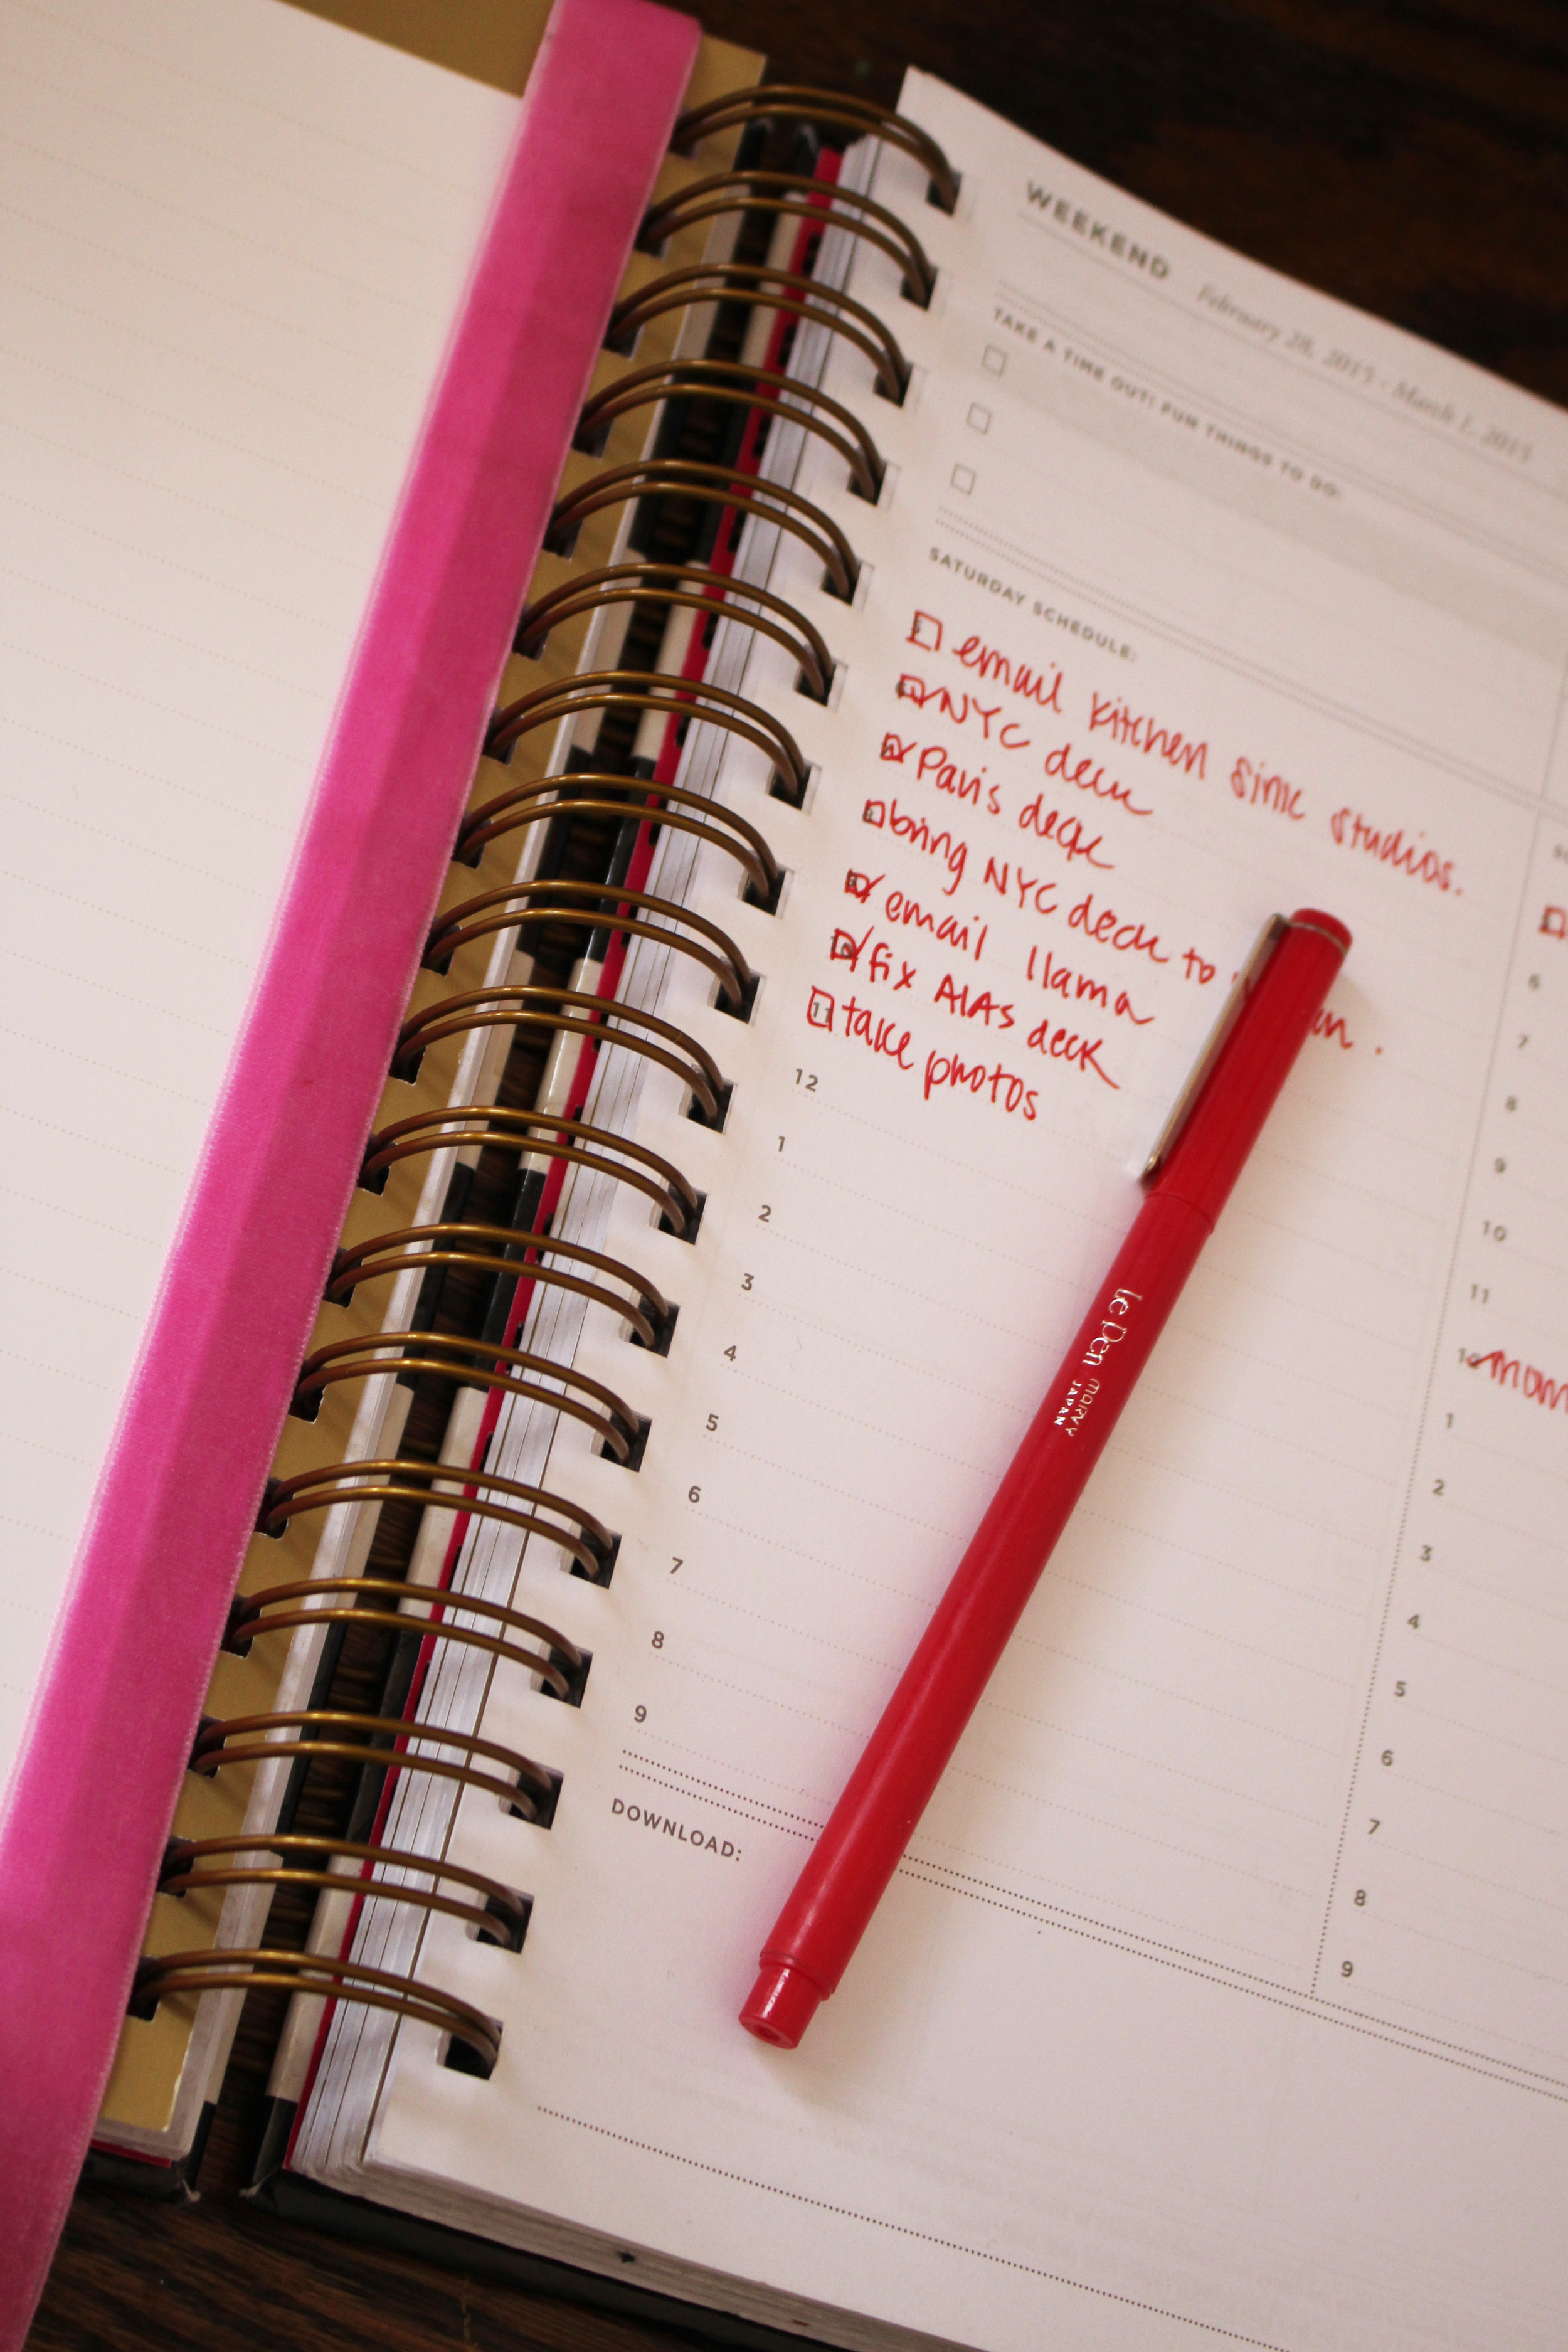 WEEKEND February 28, 2015 - March 1, 2015
TAKE A TIME OUT! FUN THINGS TO DO:
SATURDAY SCHEDULE:
email kitchen sink studios.
NYC deck
Paris deck
bring NYC deck to
email llama
10 fix AIAs deck
11 take photos
12
1
2
3
4
5
6
7
8
9
DOWNLOAD:
6
7
8
9
10
11
12 mom
1
2
3
4
5
6
7
8
9
le Pen MARVY
JAPAN